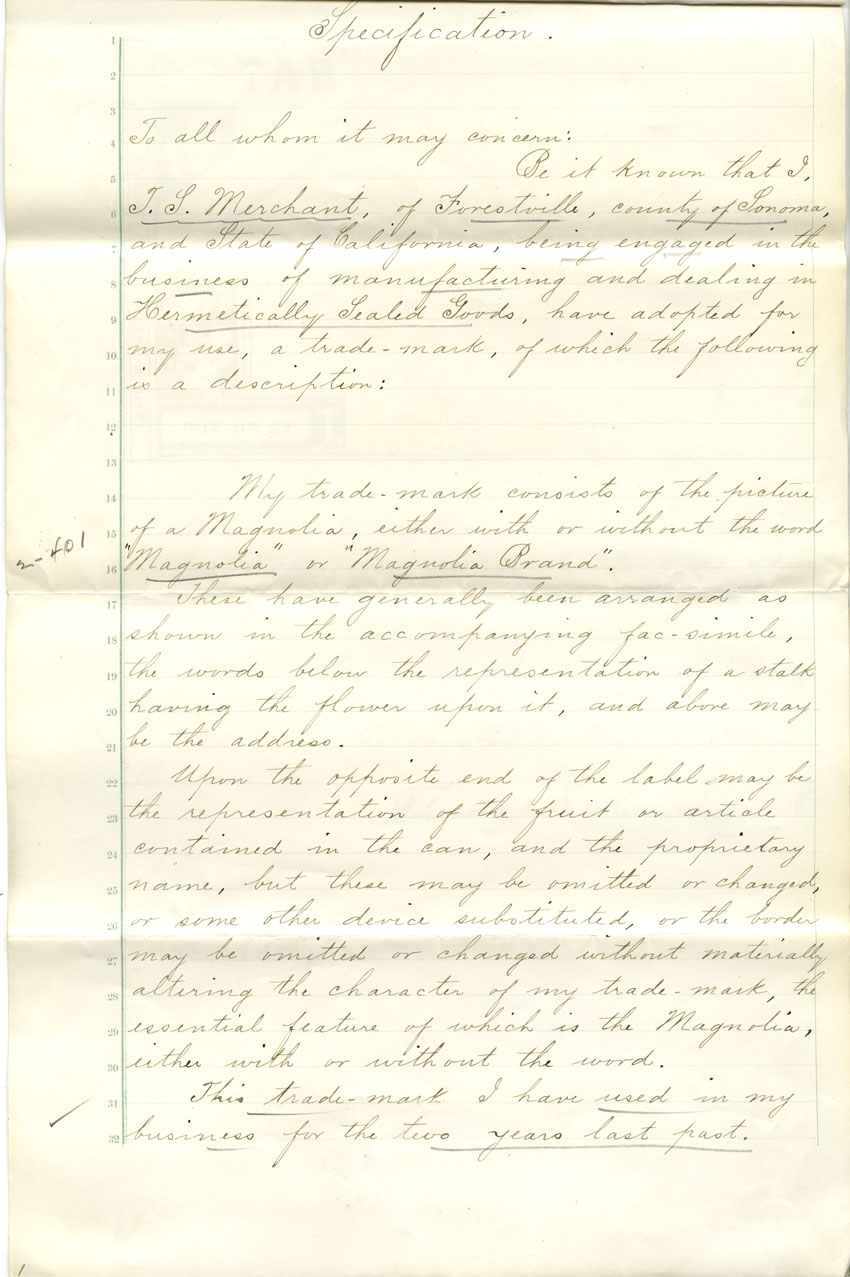 Specification.
To all whom it may concern:
Be it known that I,
T. S. Merchant, of Forestville, county of Sonoma,
and State of California, being engaged in the
business of manufacturing and dealing in
Hermetically Sealed Goods, have adopted for
my use, a trade-mark, of which the following
is a description:
My trade-mark consists of the picture
of a Magnolia, either with or without the word
2-401
"Magnolia" or "Magnolia Brand".
These have generally been arranged as
shown in the accompanying fac-simile,
the words below the representation of a stalk
having the flower upon it, and above may
be the address.
Upon the opposite end of the label may be
the representation of the fruit or article
contained in the can, and the proprietary
name, but these may be omitted or changed,
or some other device substituted, or the border
may be omitted or changed without materially
altering the character of my trade-mark, the
essential feature of which is the Magnolia,
either with or without the word.
This trade-mark I have used in my
business for the two years last past.
1
2
3
4
5
6
7
8
9
10
11
12
13
14
15
16
17
18
19
20
21
22
23
24
25
26
27
28
29
30
31
32